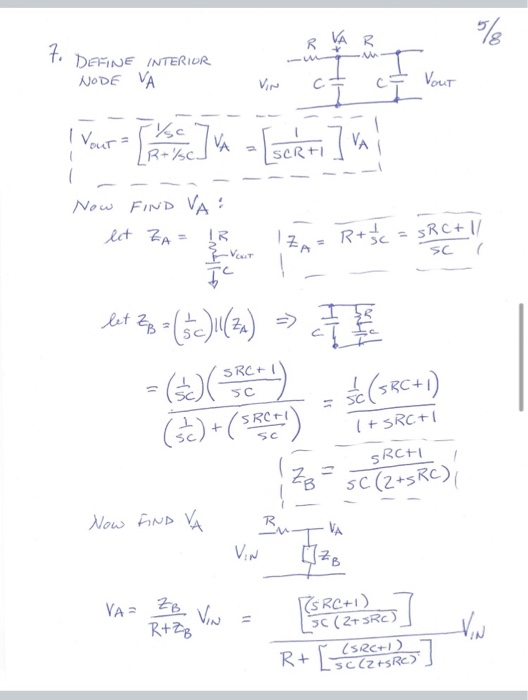 5/8
7. DEFINE INTERIOR
NODE VA
R VA R
VIN C C VOUT
VOUT = [(1/SC)/(R+1/SC)] VA = [1/(SCR+1)] VA
NOW FIND VA:
let ZA = R VOUT C
ZA = R + 1/SC = (SRC+1)/SC
let ZB = (1/SC)||(ZA) ⇒ C R C
= (1/SC)((SRC+1)/SC) / ((1/SC)+((SRC+1)/SC)) = (1/SC)(SRC+1) / (1+SRC+1)
ZB = (SRC+1) / (SC(2+SRC))
NOW FIND VA
R VA
VIN ZB
VA = ZB/(R+ZB) VIN = [(SRC+1)/(SC(2+SRC))] / (R + [(SRC+1)/(SC(2+SRC))]) VIN